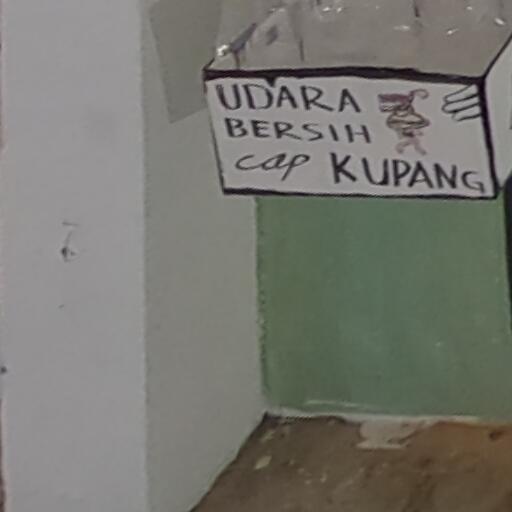 UDARA
BERSIH
cap KUPANG